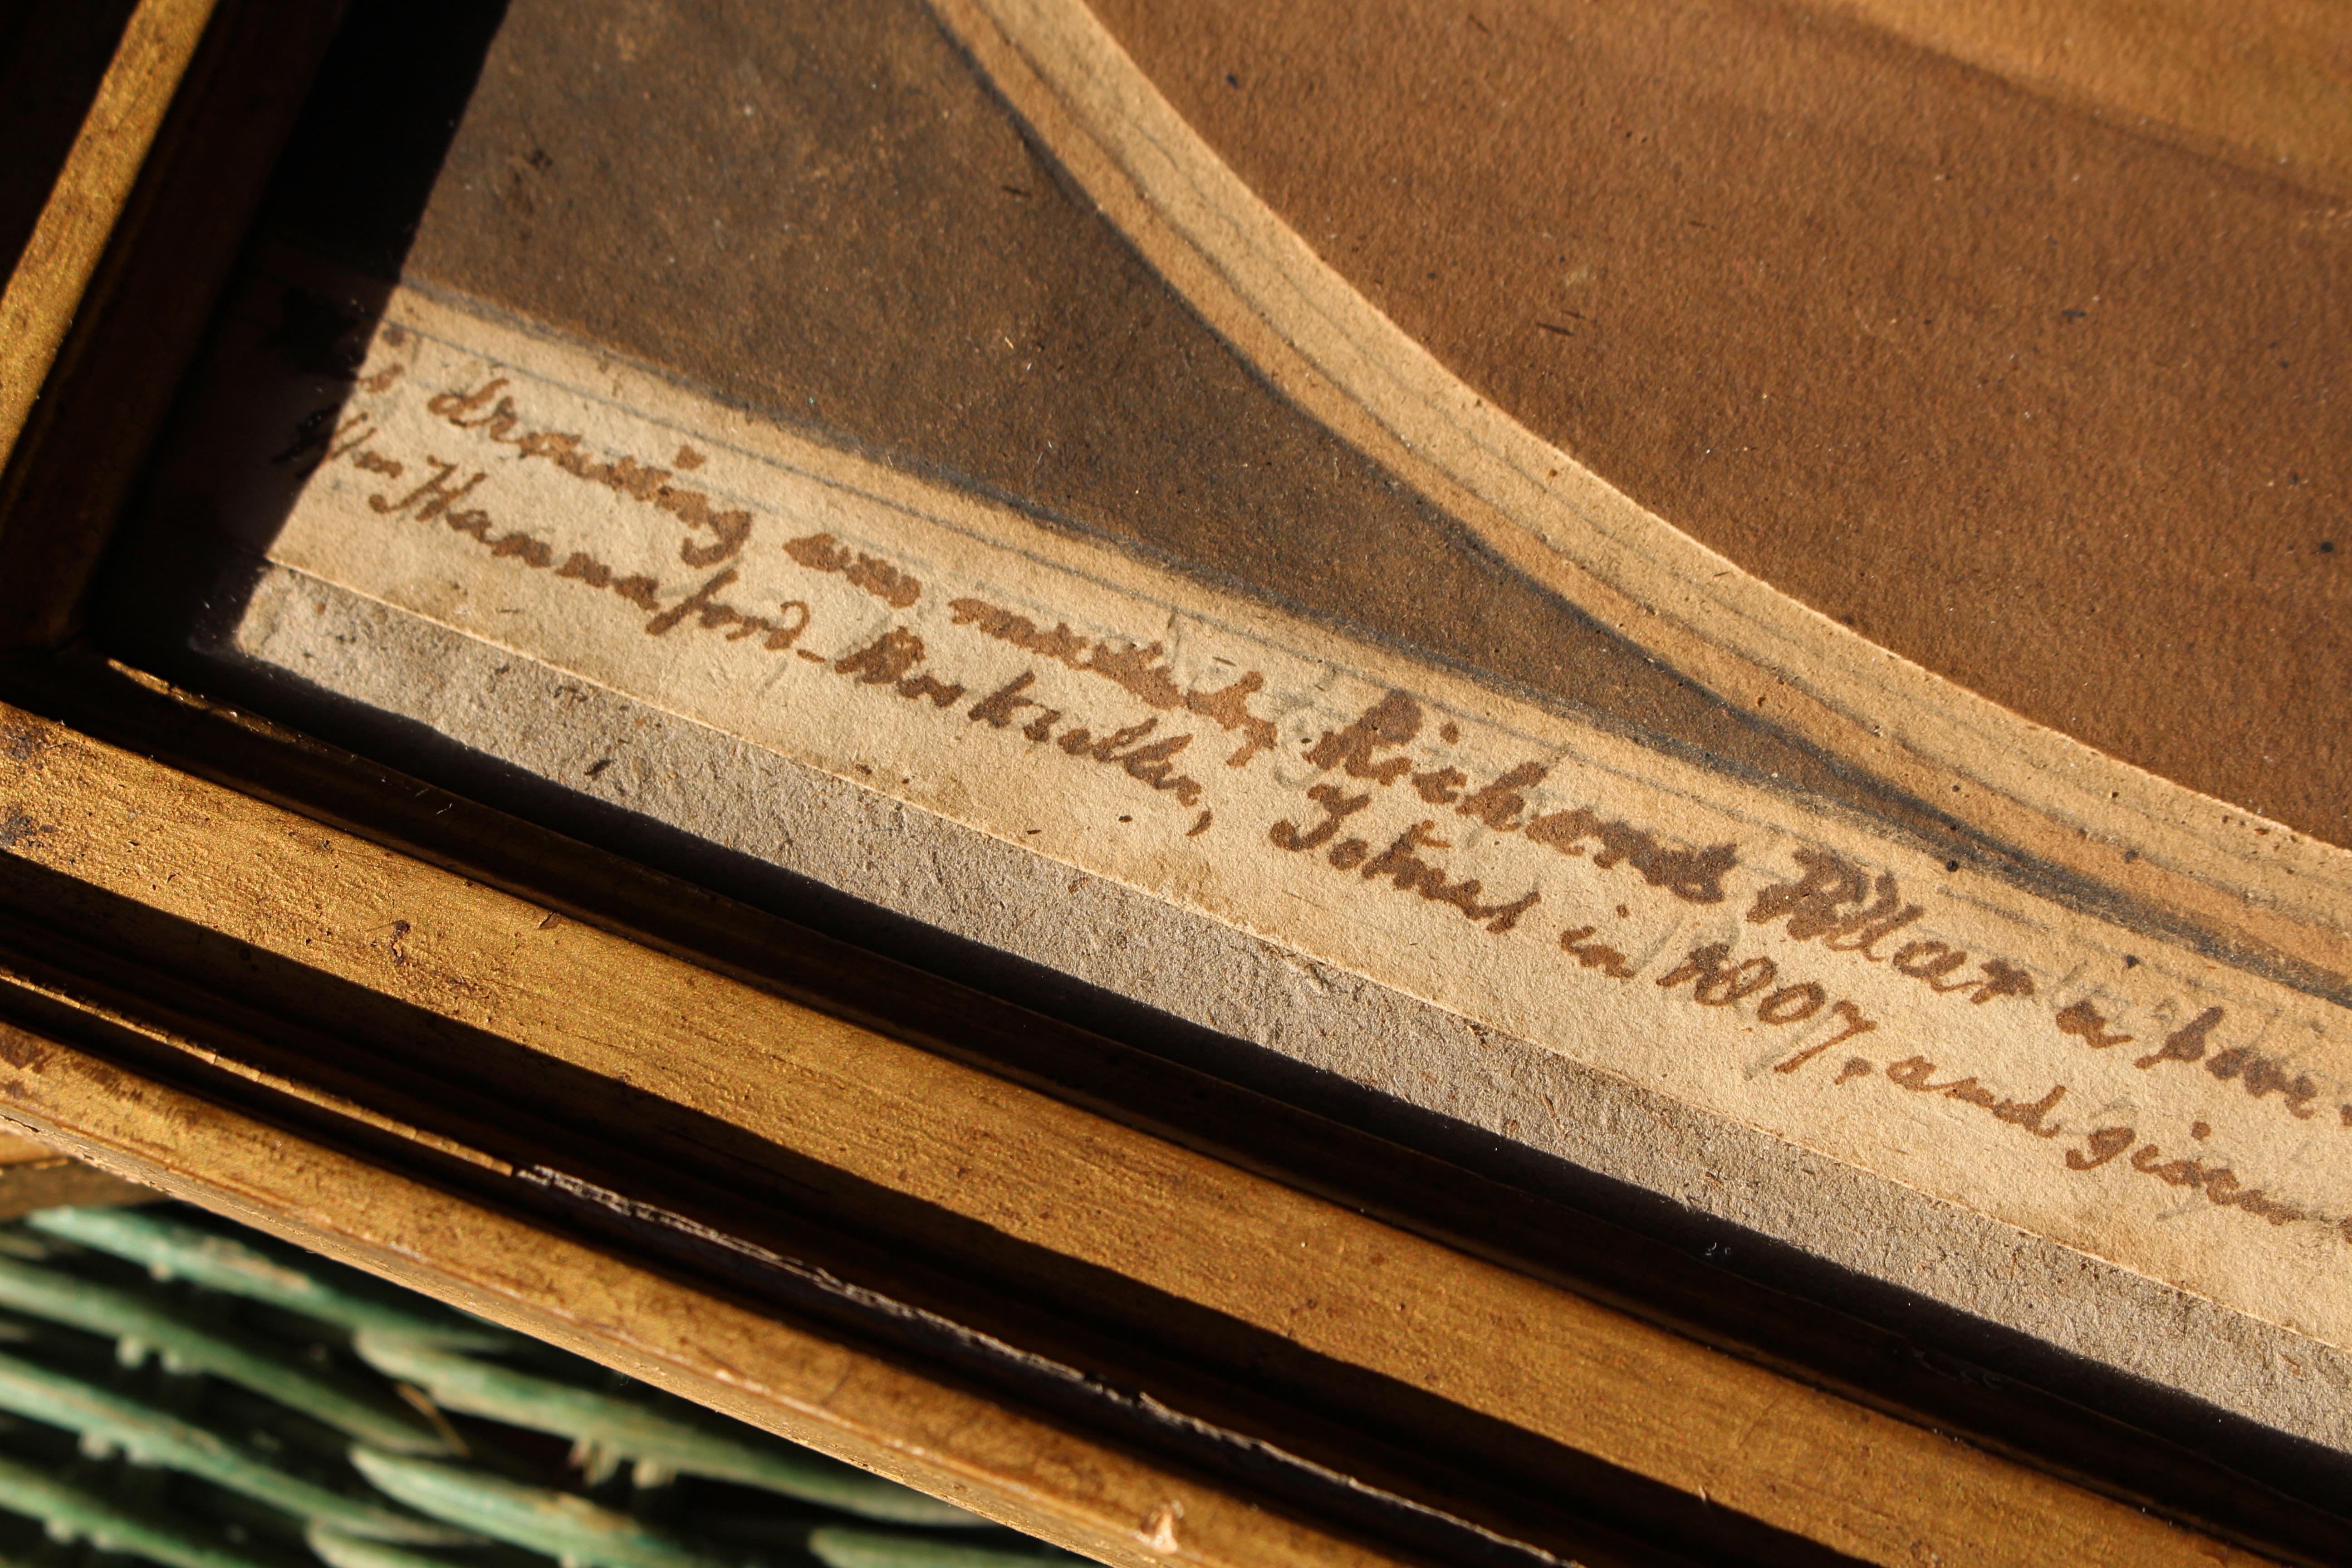 s drawing was made by Richard Pillar a poor
Wm Hannaford - Bookseller, Totnes in 1807, and given